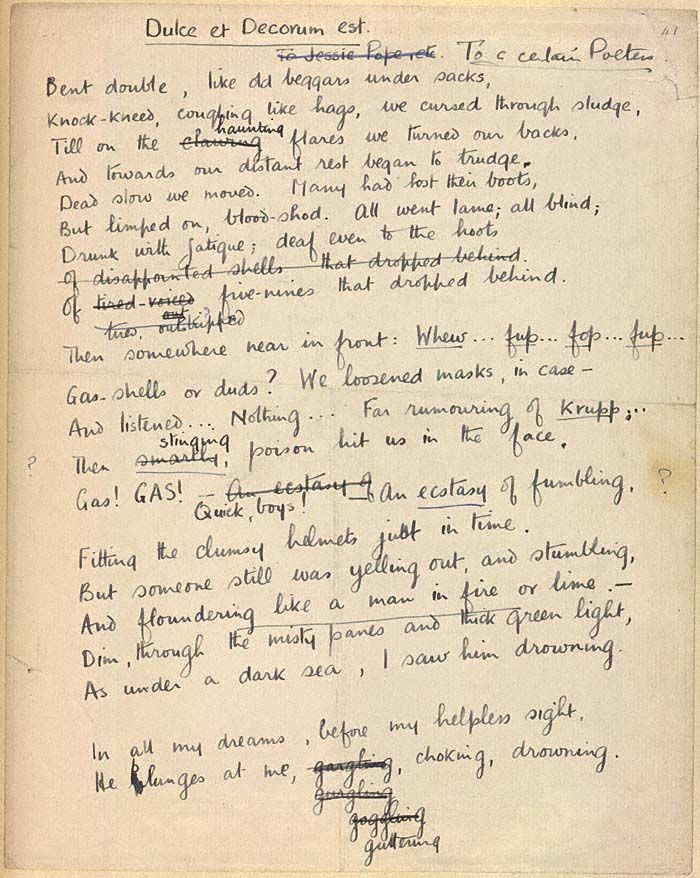 Dulce et Decorum est.
41
To Jessie Pope, etc. To a certain Poetess.
Bent double, like old beggars under sacks,
Knock-kneed, coughing like hags, we cursed through sludge,
haunting
Till on the clawing flares we turned our backs,
And towards our distant rest began to trudge.
Dead slow we moved. Many had lost their boots,
But limped on, blood-shod. All went lame; all blind;
Drunk with fatigue; deaf even to the hoots
Of disappointed shells that dropped behind.
Of tired-voiced five-nines that dropped behind.
out
tires, outstripped
Then somewhere near in front: Whew... fup... fop... fup...
Gas-shells or duds? We loosened masks, in case –
And listened... Nothing... Far rumouring of Krupp;..
stinging
? Then smartly, poison hit us in the face.
Gas! GAS! – An ecstasy of – An ecstasy of fumbling, ?
Quick, boys!
Fitting the clumsy helmets just in time.
But someone still was yelling out, and stumbling,
And floundering like a man in fire or lime. –
Dim, through the misty panes and thick green light,
As under a dark sea, I saw him drowning.
In all my dreams, before my helpless sight,
He plunges at me, gargling, choking, drowning.
gurgling
goggling
guttering